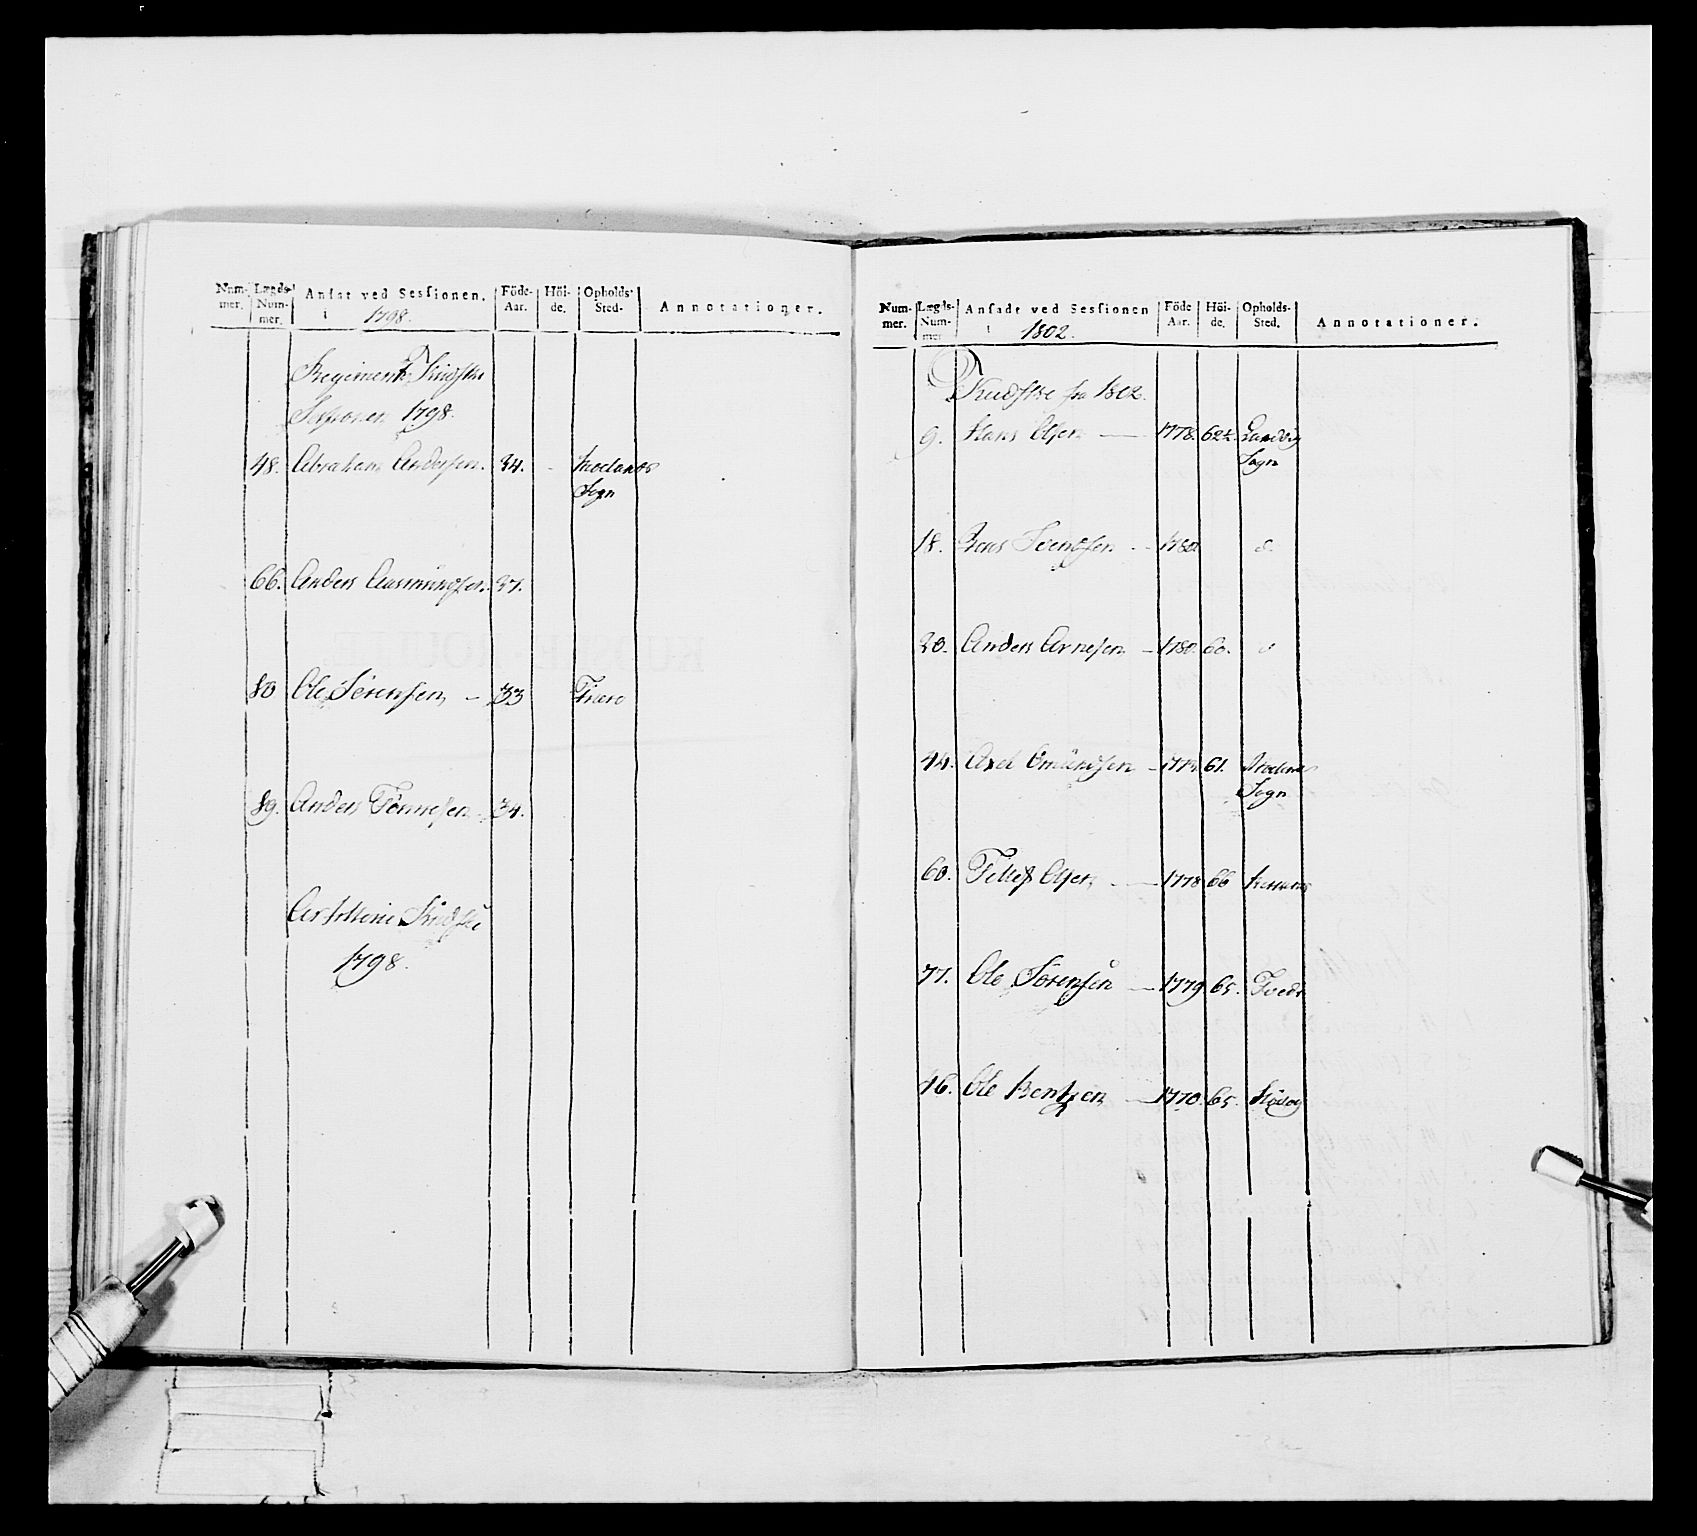 Num-mer. Lægds-Num-mer. Ansat ved Sessionen. Föde-Aar. Höi-de. Opholds-Sted- Annotationer.
i 1798.
Regiments Kudske
Sessionen 1798.
48. Abraham Andersen. 34. Moelands
Sogn
66. Anders Aasmundsen. 37.
80 Ole Sörensen 33
89. Anders Tönnesen 34.
Artillerie Kudske
1798.
Num-mer. Lægds-Num-mer Ansadt ved Sessionen Föde Aar. Höi-de. Opholds-Sted. Annotationer.
i 1802.
Kudske fra 1802.
9. Hans Olsen 1778. 62½ Landvig
Sogn
18. Svendsen 1780 d.
20. Anders Arnesen 1780. 60. d
44. Axel Omundsen 61. Moelands
Sogn
60. Tellef Olsen 1778 66
77. Ole Sörensen 1779 65. Tvede
46. Ole Bentzen 1770. 65.